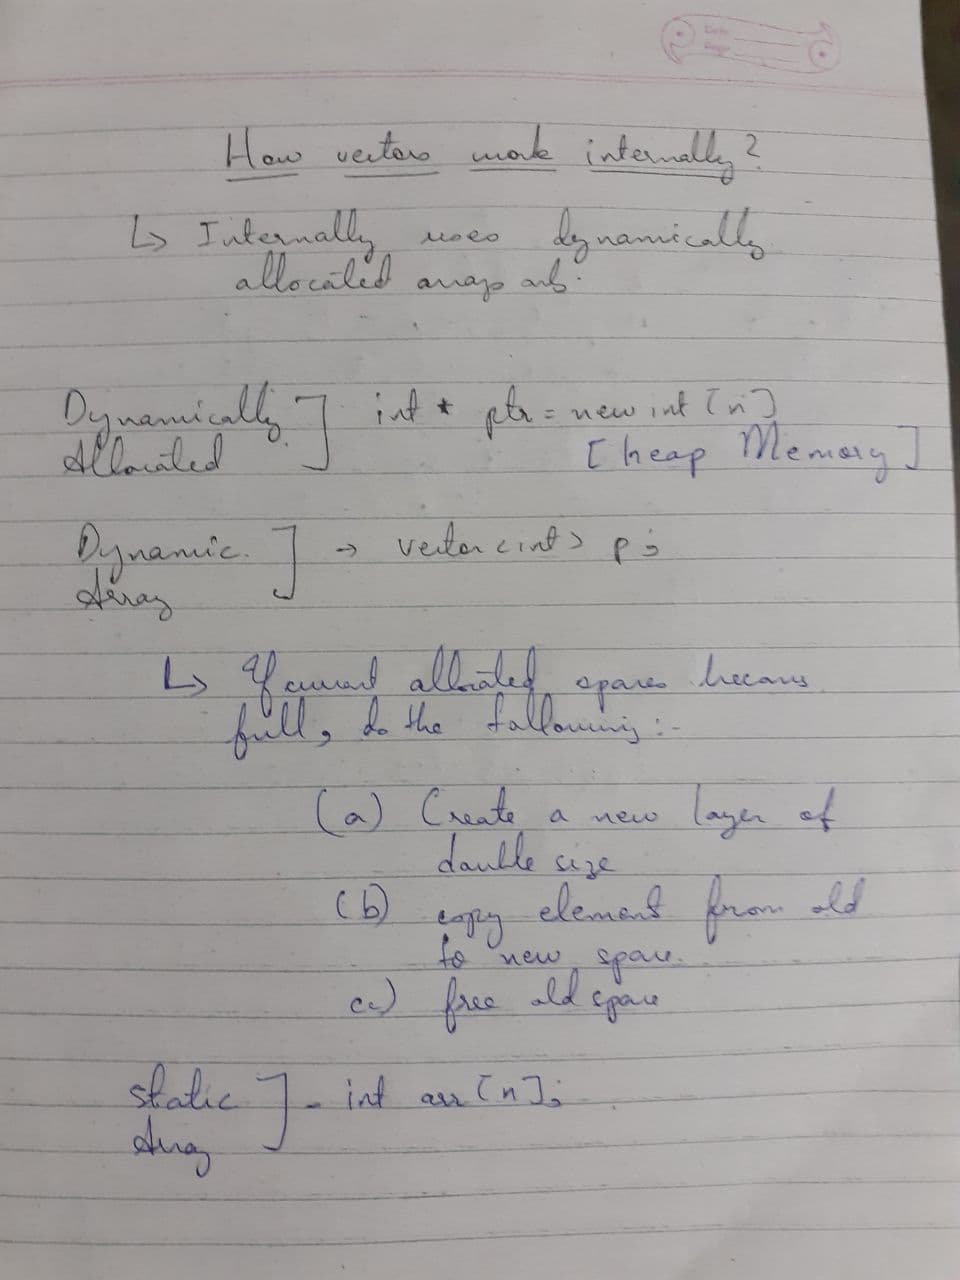 How vectors work internally?
↳ Internally uses dynamically
allocated array
Dynamically ] int * ptr = new int [n]
Allocated [heap Memory]
Dynamic ] → vector<int> p;
Array
↳ If current allocated spaces becams
full, do the following :-
(a) Create a new layer of
double size
(b) copy element from old
to new space.
(c) free old space
static ] - int arr [n];
Array